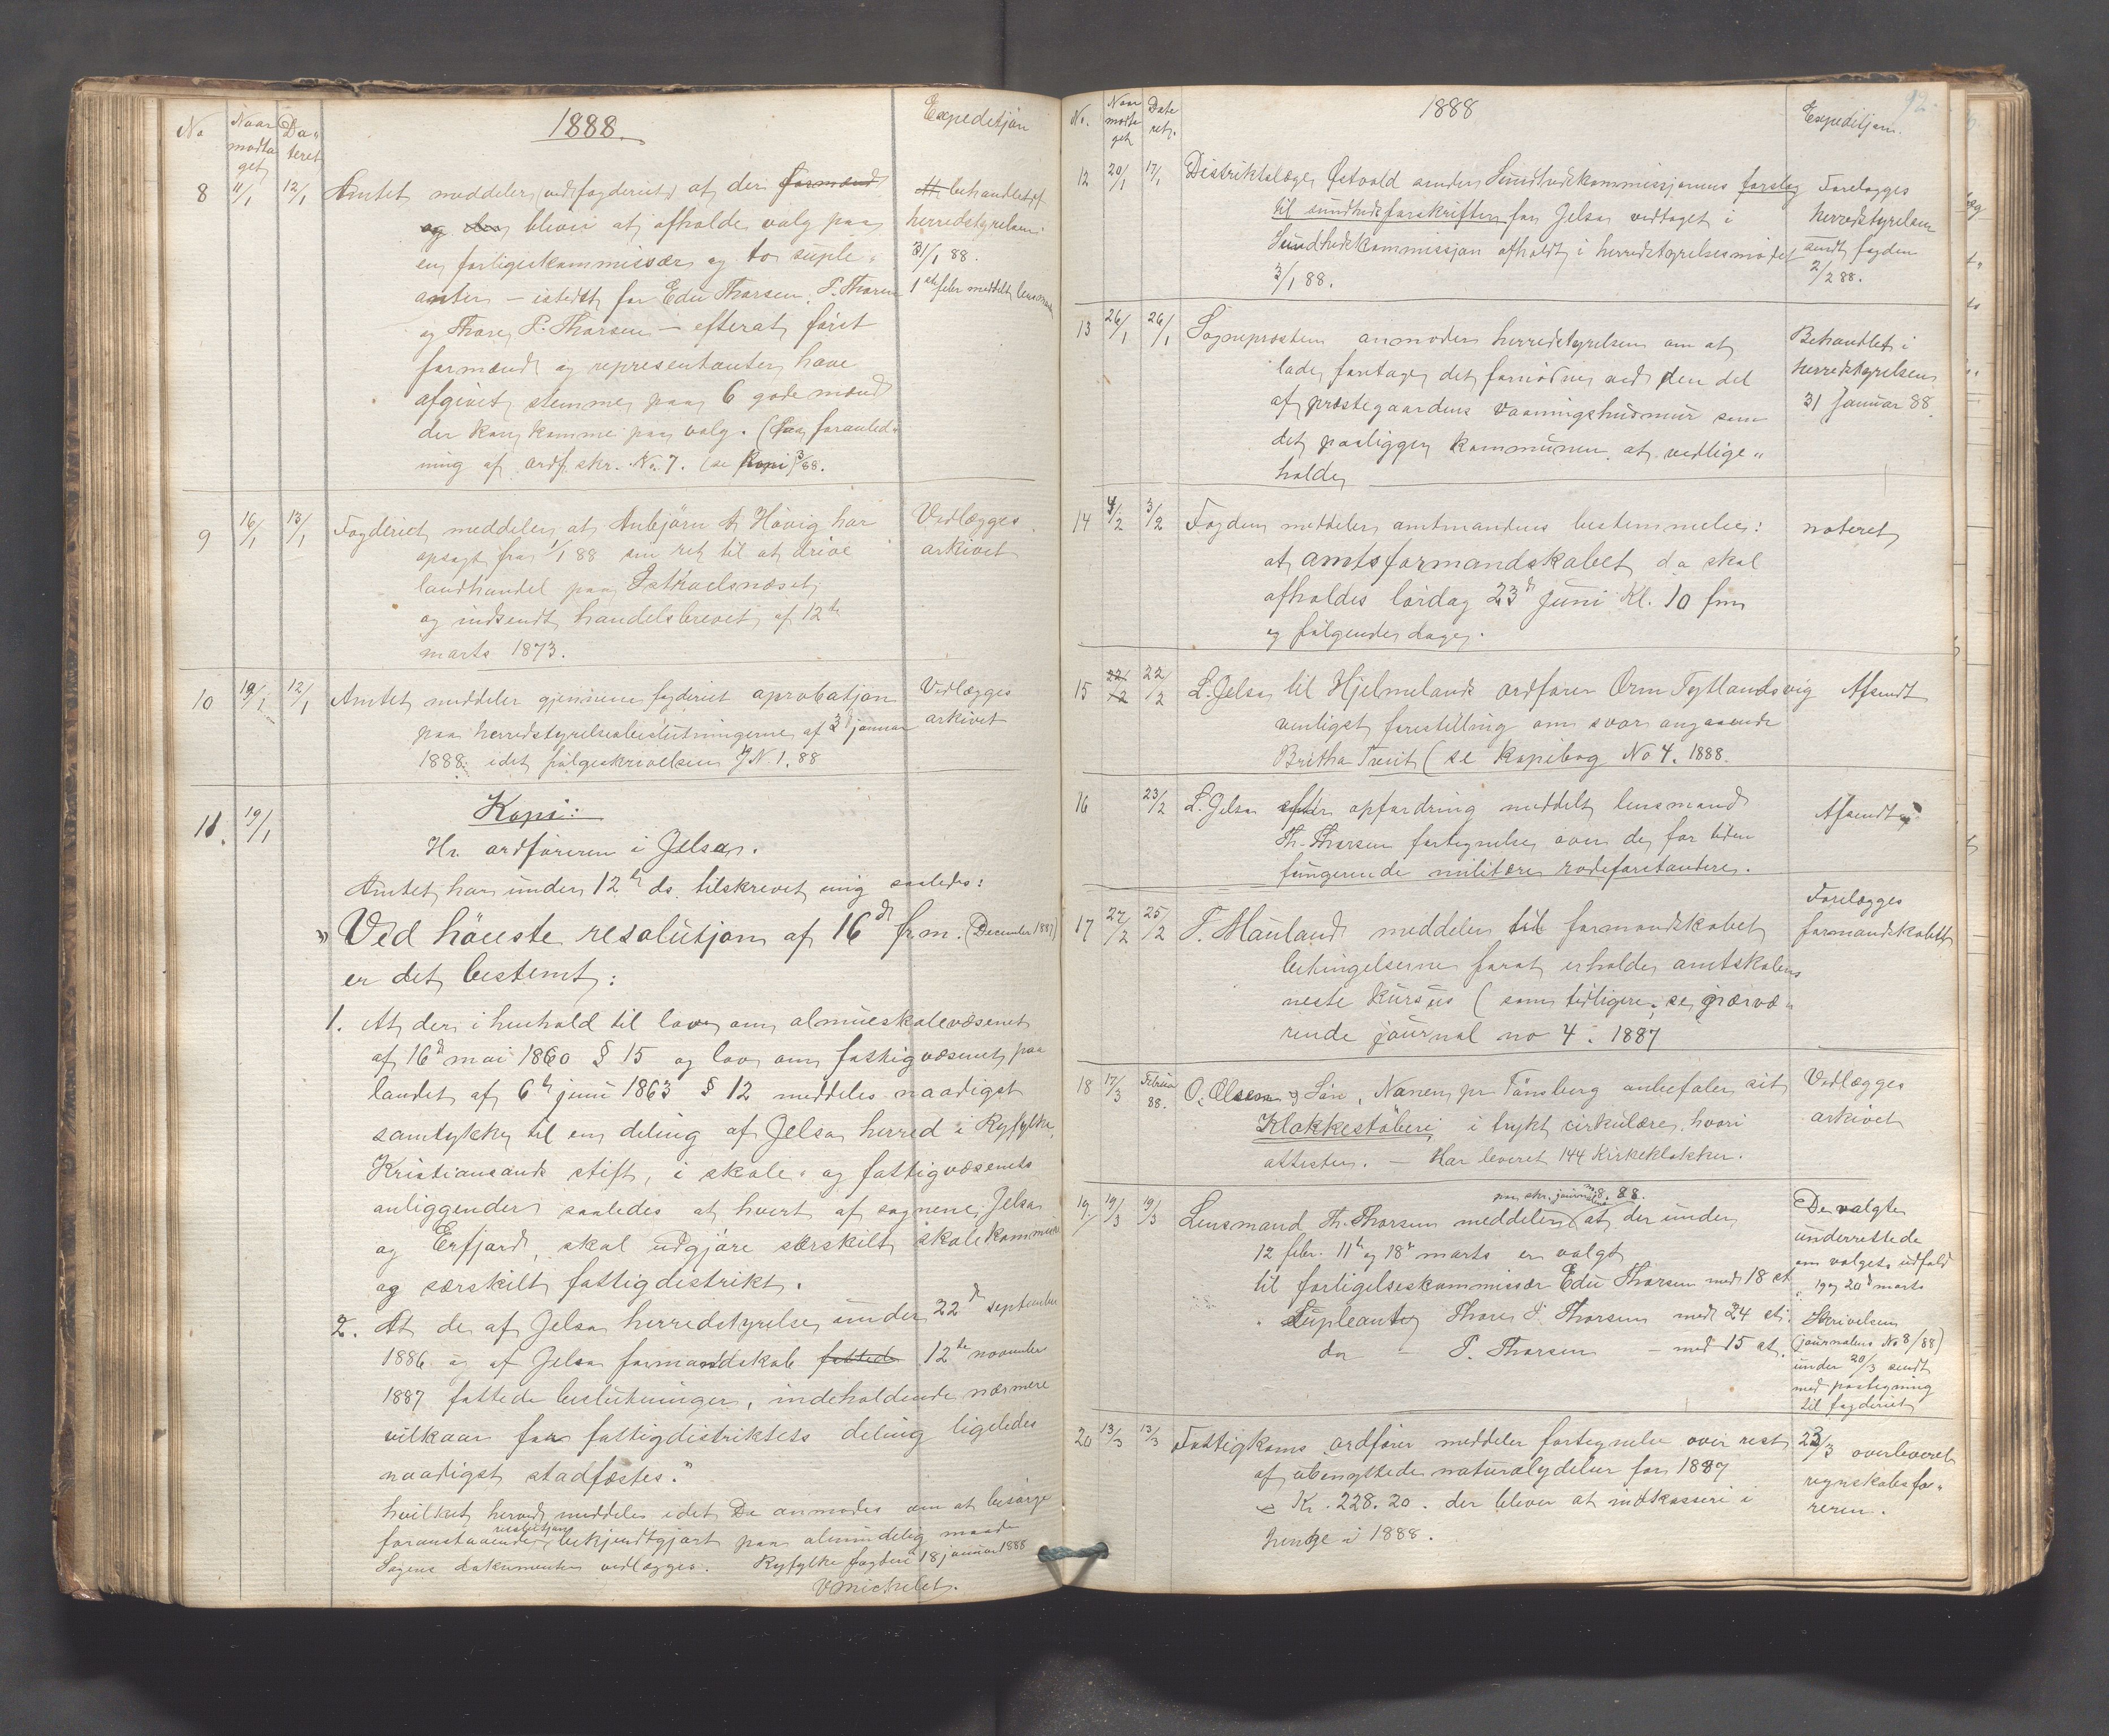 No Naar modtaget Dateret 1888. Expeditjon
8 11/1 12/1 Amtet meddeler (ved fogderiet) at der formænd
og bliver at afholde valg paa
en forligeskommissær og to suple-
anter – istedet for Edu Thorsen, P. Thorsen
og Thore P. Thorsen – efterat først
formænd og representanter have
afgivet stemme paa 6 gode mænd
der kan komme paa valg. (Paa foranled-
ning af ordf. skr. No. 7. (se Kopi 3/88.
behandlet af
herredstyrelsen
31/1 88.
1ste febr meddelt lensmand
9 16/1 13/1 Fogderiet meddeler at Anbjørn A Høvig har
opsagt fra 1/1 88 sin ret til at drive
landhandel paa
og indsendt handelsbrevet af 12te
marts 1873.
Vedlægges
arkivet
10 19/1 12/1 Amtet meddeler gjennem fogderiet aprobatjon
paa herredstyrelsesbeslutningerne af 3d januar
1888. idet følgeskrivelsen JN. 1. 88
Vedlægges
arkivet
11. 19/1 Kopi:
Hr. ordføreren i Jelsa.
Amtet har under 12te ds. tilskrevet mig saaledes:
"Ved høieste resolutjon af 16de f.m. (December 1887)
er det bestemt:
1. At der i henhold til lov om almueskolevæsenet
af 16de mai 1860 § 15 og lov om fattigvæsenet paa
landet af 6te juni 1863 § 12 meddeles naadigst
samtykke til en deling af Jelsa herred i Ryfylke,
Kristiansands stift, i skole- og fattigvæsenets
anliggender saaledes at hvert af sognene, Jelsa
og Erfjord, skal udgjøre særskilt skolekommune
og særskilt fattigdistrikt.
2. At de af Jelsa herredstyrelse under 22de september
1886 og af Jelsa formandskab fattede 12te november
1887 fattede beslutninger, indeholdende nærmere
vilkaar for fattigdistriktets deling ligeledes
naadigst stadfæstes."
hvilket herved meddeles idet De anmodes om at besørge
foranstaaende resolutjon bekjendtgjort paa almindelig maade
Sagens dokumenter vedlægges. Ryfylke fogderi 18 januar 1888
V Michelet.
No. Naar modtaget Dateret. 1888 Expeditjon. 92.
12 20/1 17/1 Distriktslæge Østvold sender Sundhedskommissjonens forslag
til sundhedsforskrifter for Jelsa vedtaget i
Sundhedskommissjon afholdt i herredstyrelsesmøde
3/1 88.
Forelægges
herredstyrelsen
sendt fogden
2/2 88.
13 26/1 26/1 Sogneprosten anmoder herredstyrelsen om at
lade foretage det fornødne ved den del
af præstegaardens vaaningshusmur som
det paaligger kommunen at vedlige-
holde
Behandlet i
herredstyrelsen
31 Januar 88.
14 4/2 3/2 Fogden meddeler amtmandens bestemmelse:
at amtsformandskabet d.a skal
afholdes lørdag 23de Juni Kl. 10 fm
og følgende dage.
noteret
15 22/2 22/2 L. Jelsa til Hjelmeland ordfører Orm Tytlandsvig
venligst forestilling om svar angaaende
Britha (se Kopibog No 4. 1888.
Afsendt
16 23/2 L. Jelsa efter opfordring meddelt lensmand
Th. Thorsen fortegnelse over de for tiden
fungerende militære rodeforstandere.
Afsendt
17 27/2 25/2 T. Mauland meddeler til formandskabet
betingelserne forat erholde amtskolens
neste kursus (som tidligere; se nærvæ-
rende journal no 4: 1887
Forelægges
formandskabet
18 17/3 Februar 88. O. Olsen & Søn, Nanen pr Tønsberg anbefaler sit
Klokkestøberi i trykt cirkulære, hvori
attester. – Har leveret 144 Kirkeklokker.
Vedlægges
arkivet
19 19/3 19/3 Lensmand Th. Thorsen meddeler paa skr. journal no 8. 88. at der under
12 febr. 11te og 18de marts er valgt
til forligelseskommissær Edu Thorsen med 18 st
Supleanter Thore P. Thorsen med 24 st.
do – P. Thorsen – med 15 st.
De valgte
underrettede
om valgets udfald
19 og 20de marts
Skrivelsen
(journalens No 8/88)
under 20/3 sendt
med paategning
til fogderiet
20 13/3 13/3 Fattigkoms ordfører meddeler fortegnelse over rest
af ubenyttede naturalydelser for 1887
Kr. 228.20. der bliver at indkassere i
penge i 1888.
23/3 overleveret
regnskabsfø-
reren.